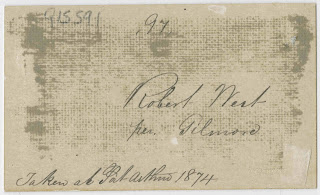 Q15.591
,97
Robert West
per Pilmore
Taken at Port Arthur 1874